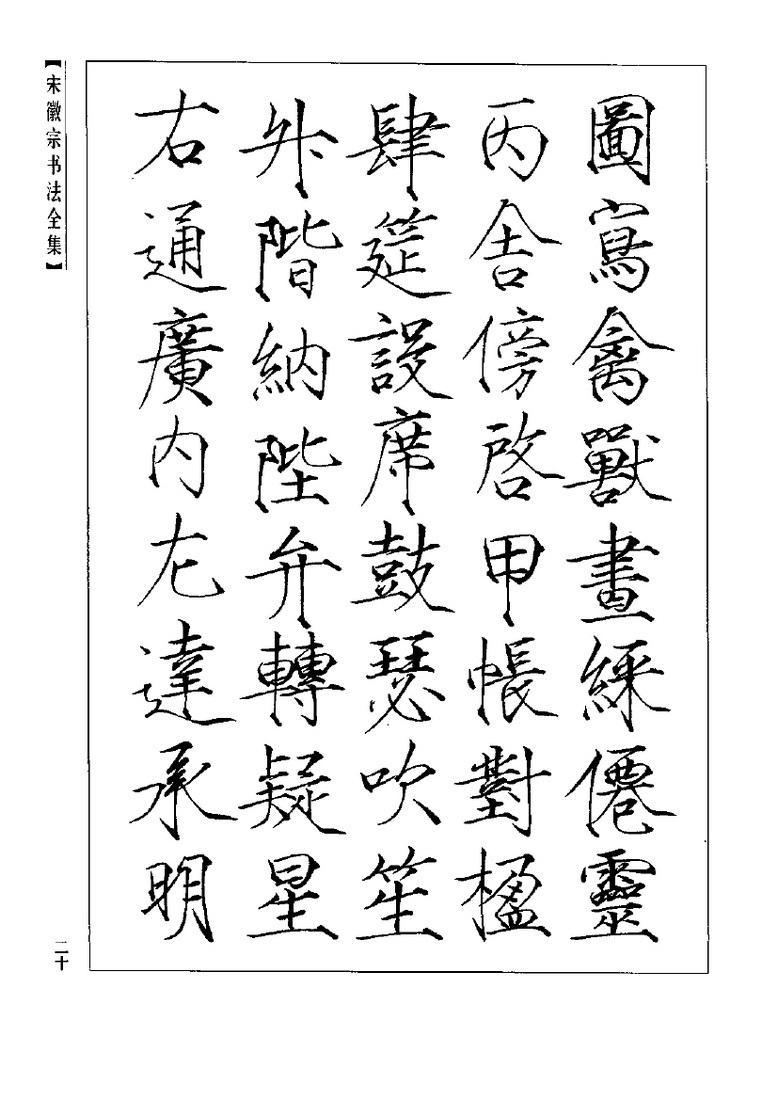 圖寫禽獸畫綵僊靈
丙舍傍啓甲帳對楹
肆筵設席鼓瑟吹笙
升階納陛弁轉疑星
右通廣内左達承明
【宋徽宗书法全集】
二十